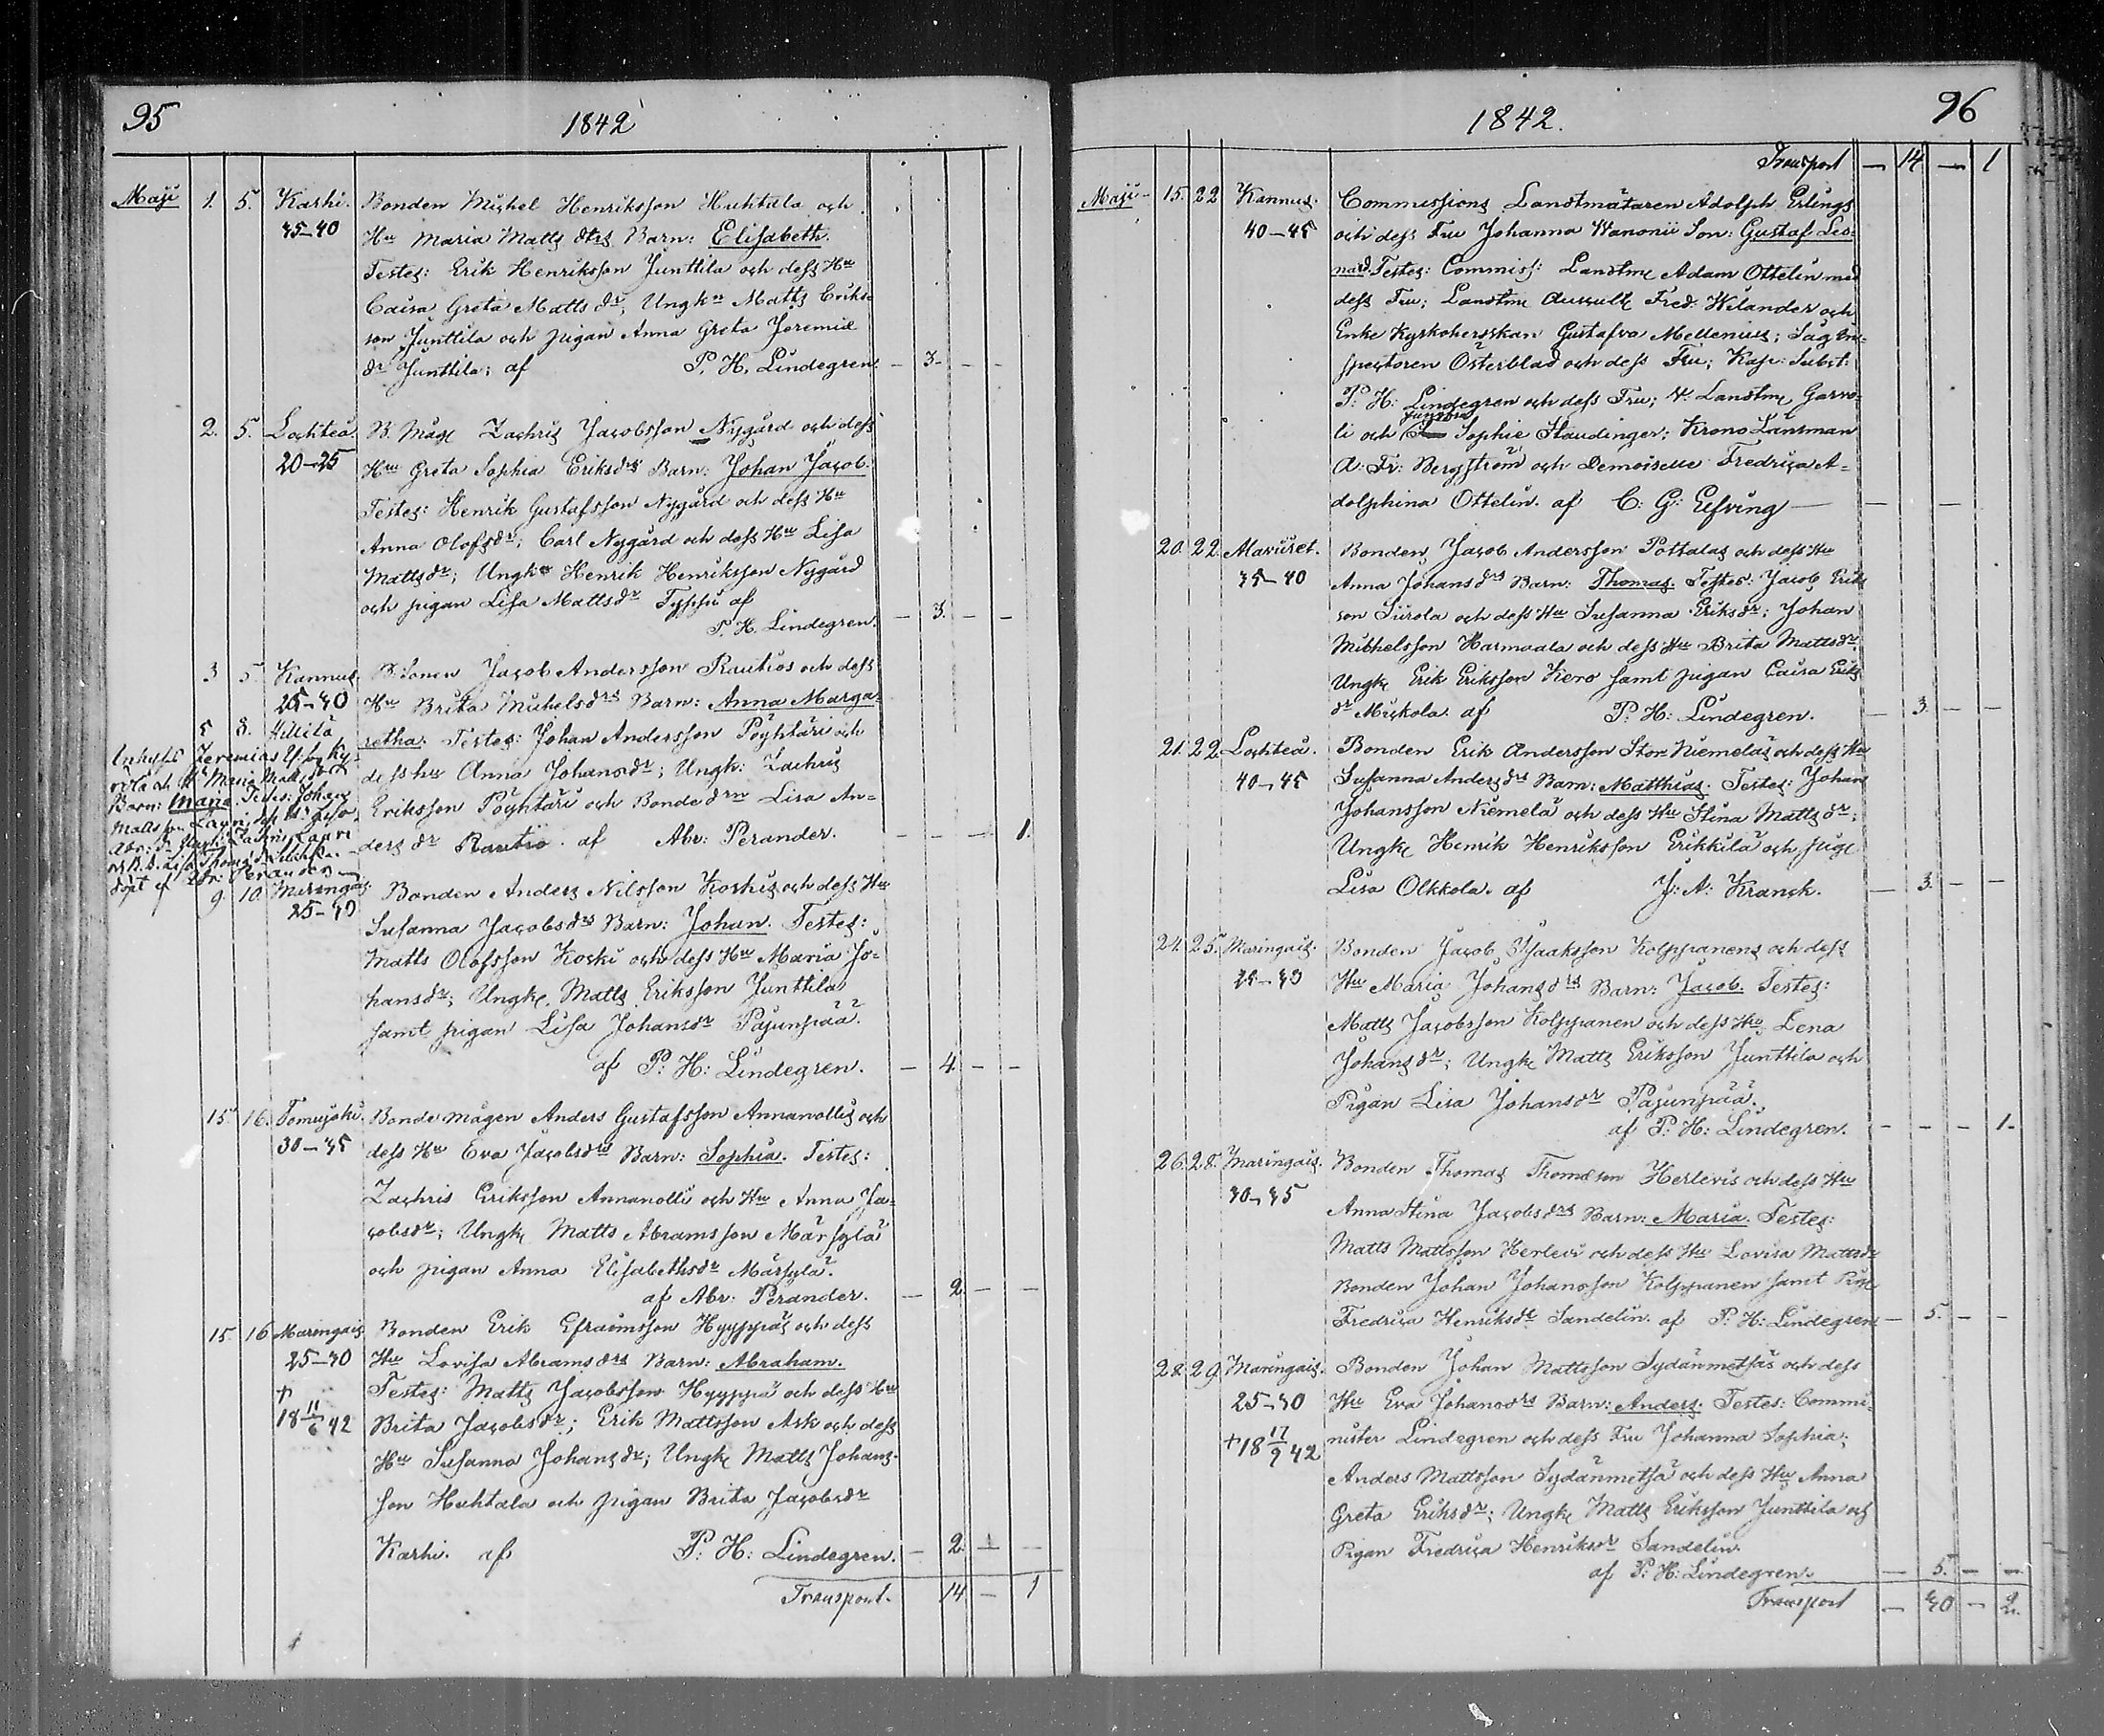 95
1842
Maji 1. 5. Karhi. Bonden Michel Henriksson Huhtala och
35–40 Hu Maria Matts dtrs Barn: Elisabeth.
Testes: Erik Henriksson Junttila och dess Hu
Caisa Greta Matts dr, Ungkn Matts Eriks-
son Junttila och pigan Anna Greta Jeremiæ
dr Junttila; af P. H. Lindegren. – 3 – –
2. 5. Lochteå. B. Måge Zachris Jacobsson Nygård och dess
20–25 Hu Greta Sophia Eriksdrs Barn: Johan Jacob.
Testes: Henrik Gustafsson Nygård och dess Hu
Anna Olofsdr; Carl Nygård och dess Hu Lisa
Mattsdr; Ungkn Henrik Henriksson Nygård
och pigan Lisa Mattsdr Typpii af
P. H. Lindegren. – 3. – –
3 5. Kannus B: Sonen Jacob Andersson Rautios och dess
25–30 Hu Brita Michelsdrs Barn: Anna Marga-
retha. Testes: Johan Andersson Pöyhtäri och
dess hu Anna Johansdr; Ungk: Zachris
Eriksson Pöyhtäri och Bonde drn Lisa An-
ders dr Rautio. af Abr: Perander. – – – 1.
5 8. Hillilä
Inhyses Jeremias
Barn: Maria. Testes: Johan
Matts son Lauri, dess
döpt af Abr: Perander
9. 10. Maringais Bonden Anders Nilsson Koskis och dess Hu
25–30 Susanna Jacobsdrs Barn: Johan. Testes:
Matts Olofsson Koski och dess Hu Maria Jo-
hansdr; Ungk. Matts Eriksson Junttila
samt pigan Lisa Johansdr Pajunpää.
af P: H: Lindegren. – 4. – –
15. 16. Tomujoki. Bonde mågen Anders Gustafsson Annanollis och
30–35 dess Hu Eva Jacobsdrs Barn: Sophia. Testes:
Zachris Eriksson Annanolli och Hu Anna Ja-
cobsdr; Ungk. Matts Abramsson Märsylä
och pigan Anna Elisabethsdr Märsylä.
af Abr: Perander. – 2 – –
15. 16 Maringais Bonden Erik Efraimsson Hyyppäs och dess
25–30 Hu Lovisa Abramsdrs Barn: Abraham.
† Testes: Matts Jacobsson Hyyppä och dess Hu
18 11/6 42 Brita Jacobsdr; Erik Mattsson Ask och dess
Hu Susanna Johansdr; Ungk. Matts Johans-
son Huhtala och pigan Brita Jacobsdr
Karhi. af P: H: Lindegren. – 2 – –
Transport. 14 – 1
96
1842.
Transport – 14 – 1
Maji 15. 22 Kannus. Commissions Landtmätaren Adolph Erlings
40–45 och dess Fru Johanna Wanonii Son: Gustaf Leo-
nard. Testes: Commiss: Landtm. Adam Ottelin med
dess Fru; Landtm. Auscult. Fred: Wilander och
Enke Kyrkoherrskan Gustafva Mellenius; Såg In-
spectoren Österblad och dess Fru; Kap: Subst:
P: H: Lindegren och dess Fru; V. Landtm. Garvo-
li och Jungfru Sophie Staudinger; Krono Länsman
A: Fr: Bergström och Demoiselle Fredrica A-
dolphina Ottelin. af C: G: Elfving – – –
20. 22. Alaviiret. Bonden Jacob Andersson Pottalas och dess Hu
35–40 Anna Johansdrs Barn: Thomas. Testes: Jacob Eriks
son Siirola och dess Hu Susanna Eriksdr; Johan
Michelsson Harmaala och dess Hu Brita Mattsdr
Ungk. Erik Eriksson Kero samt pigan Caisa Eriks
dr Mickola. af P: H: Lindegren. – 3. – –
21. 22. Lochteå. Bonden Erik Andersson Stor Niemeläs och dess Hu
40–45 Susanna Andersdrs Barn: Matthias. Testes: Johan
Johansson Niemelä och dess Hu Stina Mattsdr;
Ungk. Henrik Henriksson Erikkilä och pig.
Lisa Olkkola. af J: A: Kranck. – 3. – –
24. 25. Maringais. Bonden Jacob Isaaksson Kolppanens och dess
25–30 Hu Maria Johansdrs Barn: Jacob. Testes:
Matts Jacobsson Kolppanen och dess Hu Lena
Johansdr; Ungk. Matts Eriksson Junttila och
Pigan Lisa Johansdr Pajunpää.
af P: H: Lindegren. – – – 1.
26. 28. Maringais. Bonden Thomas Thomæson Herlevis och dess Hu
30–35 Anna Stina Jacobsdrs Barn: Maria. Testes:
Matts Mattsson Herlevi och dess Hu Lovisa Mattsdr
Bonden Johan Johansson Kolppanen samt Pig.
Fredrica Henriksdr Sandelin. af P: H: Lindegren – 5. – –
28. 29. Maringais. Bonden Johan Mattsson Sydänmetsäs och dess
25–30 Hu Eva Johansdrs Barn: Anders. Testes: Commi-
†18 17/9 42 nister Lindegren och dess Fru Johanna Sophia;
Anders Mattsson Sydänmetsä och dess Hu Anna
Greta Eriksdr; Ungk. Matts Eriksson Junttila och
Pigan Fredrica Henriksdr Sandelin.
af P: H: Lindegren. – 5. – –
Transport – 30 – 2.